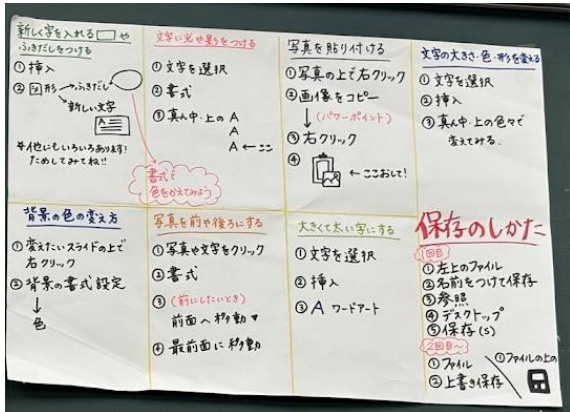 新しく字を入れる □ や
ふきだしをつける
①挿入
②図形→ふきだし
新しい文字
A
※他にもいろいろあります!
ためしてみてね!!
書式で
色をかえてみよう
文字に光や影をつける
①文字を選択
②書式
③真ん中・上の A
A
A ←ここ
写真を貼り付ける
①写真の上で右クリック
②画像をコピー
(パワーポイント)
③右クリック
④
←ここおして!
文字の大きさ・色・形を変える
①文字を選択
②挿入
③真ん中・上の色々で
変えてみる。
背景の色の変え方
①変えたいスライドの上で
右クリック
②背景の書式設定
↓
色
写真を前や後ろにする
①写真や文字をクリック
②書式
③(前にしたいとき)
前面へ移動▼
④最前面に移動
大きくて太い字にする
①文字を選択
②挿入
③A ワードアート
保存のしかた
1回目
①左上のファイル
②名前をつけて保存
③参照
④デスクトップ
⑤保存(s)
2回目〜
①ファイル
②上書き保存
①ファイルの上の